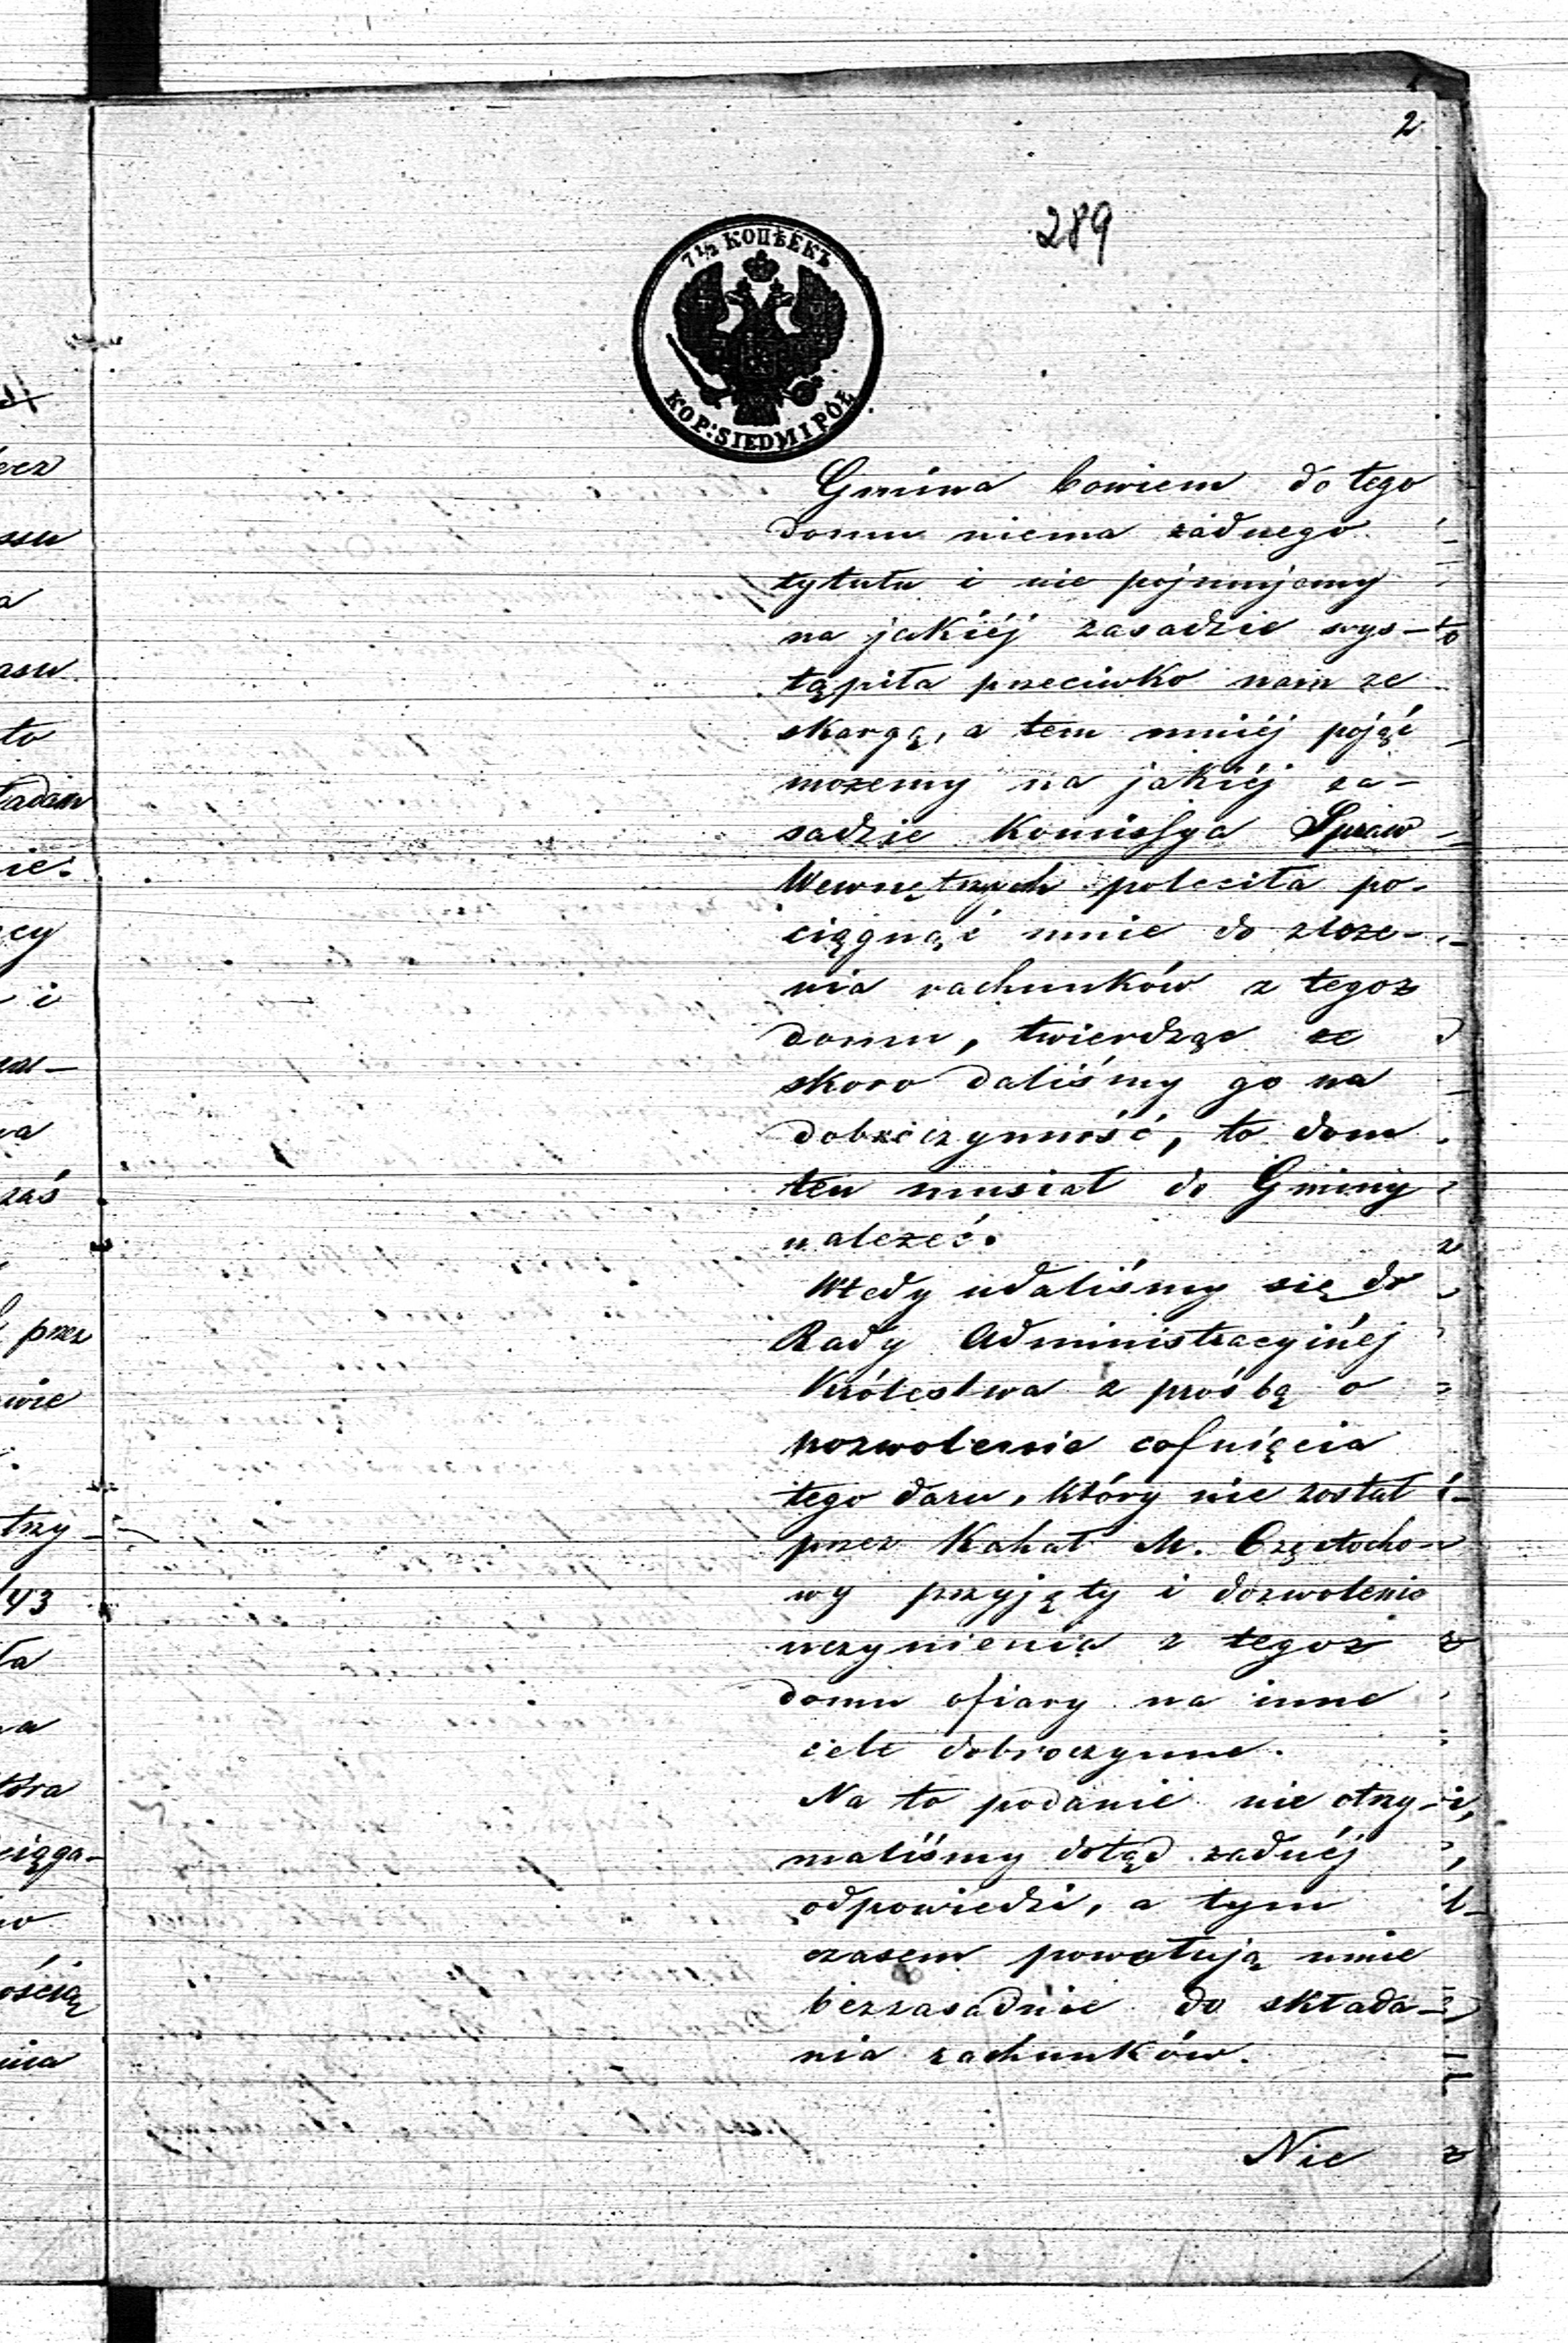 2
289
7 1/2 КОПѢЕКЪ
KOP: SIEDM I PÓŁ
Gmina bowiem do tego
domu niema żadnego
tytułu i nie pojmujemy
na jakiéj zasadzie wys-
tąpiła przeciwko nam ze
skargą, a tem mniéj pojąć
możemy na jakiéj za-
sadzie Komissya Spraw
Wewnętrznych poleciła po-
ciągnąć mnie do złoże-
nia rachunków z tegoż
domu, twierdząc że
skoro daliśmy go na
dobroczynność, to dom
ten musiał do Gminy
należeć.
Wtedy udaliśmy się do
Rady Administracyinéj
Królestwa z prośbą o
pozwolenie cofnięcia
tego daru, który nie został
przez Kahał M. Częstocho-
wy przyjęty i dozwolenia
uczynienia z tegoż
domu ofiary na inne
cele dobroczynne.
Na to podanie nie otrzy-
maliśmy dotąd żadnéj
odpowiedzi, a tym
czasem powołują mnie
bezzasadnie do składa-
nia rachunków.
Nie